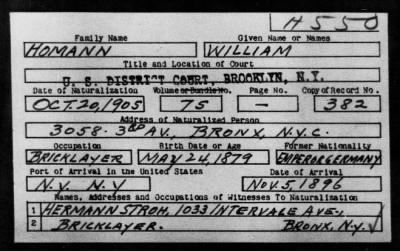 H 550
Family Name Given Name or Names
HOMANN WILLIAM
Title and Location of Court
U. S. DISTRICT COURT, BROOKLYN, N.Y.
Date of Naturalization Volume or Bundle No. Page No. Copy of Record No.
OCT. 20, 1905 75 — 382
Address of Naturalized Person
3058 - 3RD AV., BRONX, N.Y.C.
Occupation Birth Date or Age Former Nationality
BRICKLAYER MAY 24, 1879 EMPEROR GERMANY
Port of Arrival in the United States Date of Arrival
N.Y. N.Y NOV. 5, 1896
Names, Addresses and Occupations of Witnesses To Naturalization
1 HERMANN STROH. 1033 INTERVALE AVE.,
2 BRICKLAYER. BRONX, N.Y.